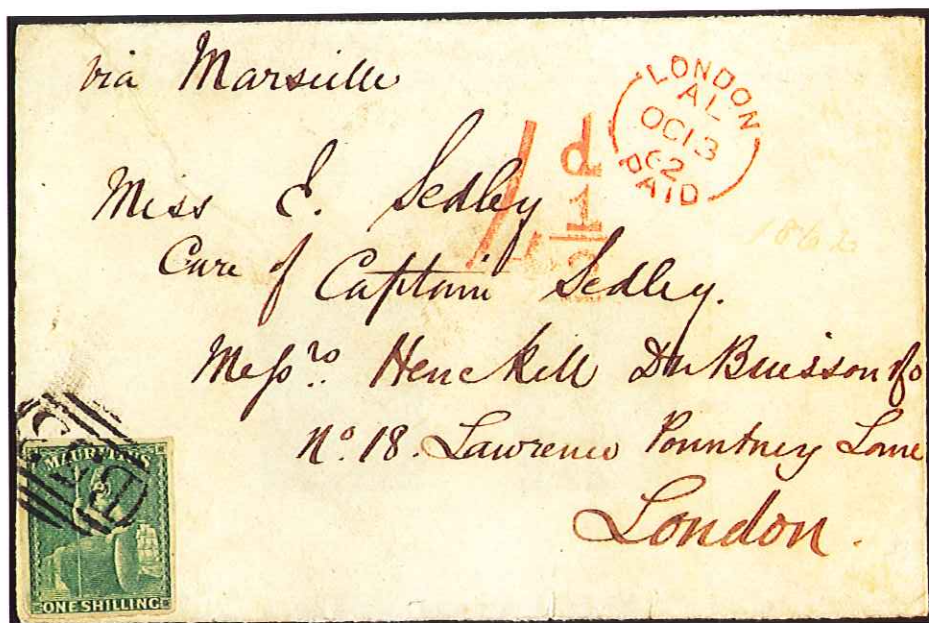 via Marseille
LONDON
AL
OC13
62
PAID
1d
Miss E. Sedley
1862
Care of Captain Sedley.
Messrs. Henckell Du Buisson & Co
No. 18. Lawrence Pountney Lane
London.
MAURITIUS
ONE SHILLING